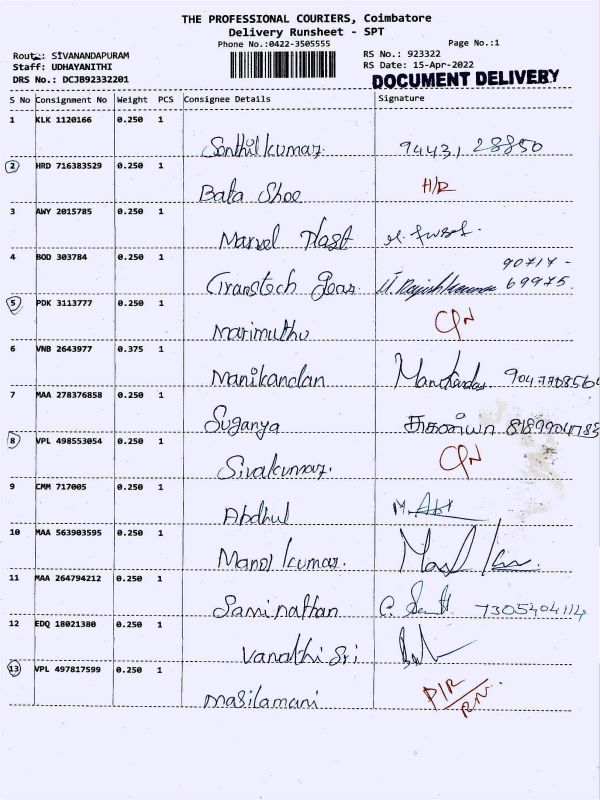 THE PROFESSIONAL COURIERS, Coimbatore
Delivery Runsheet - SPT
Phone No.:0422-3505555 Page No.:1
Route: SIVANANDAPURAM RS No.: 923322
Staff: UDHAYANITHI RS Date: 15-Apr-2022
DRS No.: DCJB92332201 DOCUMENT DELIVERY
S No Consignment No Weight PCS Consignee Details Signature
1 KLK 1120166 0.250 1
Senthilkumar. 94431 28850
2 HRD 716383529 0.250 1
Bata Shoe H/R
3 AWY 2015785 0.250 1
Marvel Plast
4 BOD 303784 0.250 1
90717-
Transtech Gears M. Rajeshkumar 69975.
5 PDK 3113777 0.250 1
Marimuthu C/N
6 VNB 2643977 0.375 1
Manikandan 9047708564
7 MAA 278376858 0.250 1
Suganya சுகன்யா 8189904783
8 VPL 498553054 0.250 1
Sivakumar. C/N
9 CMM 717005 0.250 1
Abdhul
10 MAA 563903595 0.250 1
Manoj kumar.
11 MAA 264794212 0.250 1
Saminathan 7305404114
12 EDQ 18021380 0.250 1
Vanathi Sri
13 VPL 497817599 0.250 1
Masilamani P/R